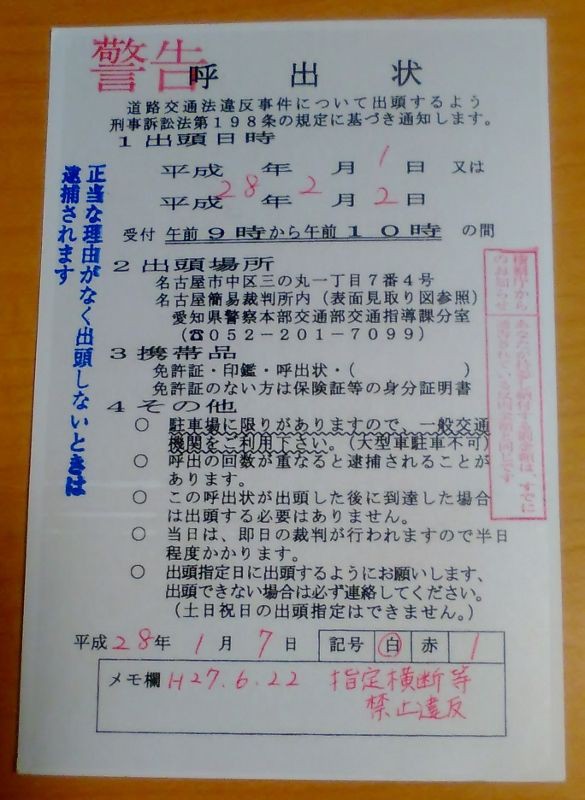 警告
呼出状
道路交通法違反事件について出頭するよう
刑事訴訟法第198条の規定に基づき通知します。
1出頭日時
平成 年 月 1 日 又は
平成 28 年 2 月 2 日
受付 午前9時から午前10時 の間
2出頭場所
名古屋市中区三の丸一丁目7番4号
名古屋簡易裁判所内(表面見取り図参照)
愛知県警察本部交通部交通指導課分室
(☎052-201-7099)
3携帯品
免許証・印鑑・呼出状・( )
免許証のない方は保険証等の身分証明書
4その他
○ 駐車場に限りがありますので、一般交通
機関をご利用下さい。(大型車駐車不可)
○ 呼出の回数が重なると逮捕されることが
あります。
○ この呼出状が出頭した後に到達した場合
は出頭する必要はありません。
○ 当日は、即日の裁判が行われますので半日
程度かかります。
○ 出頭指定日に出頭するようにお願いします、
出頭できない場合は必ず連絡してください。
(土日祝日の出頭指定はできません。)
平成28年 1月 7日 記号 白 赤 1
メモ欄 H27.6.22 指定横断等
禁止違反
正当な理由がなく出頭しないときは
逮捕されます
検察庁から
のお知らせ